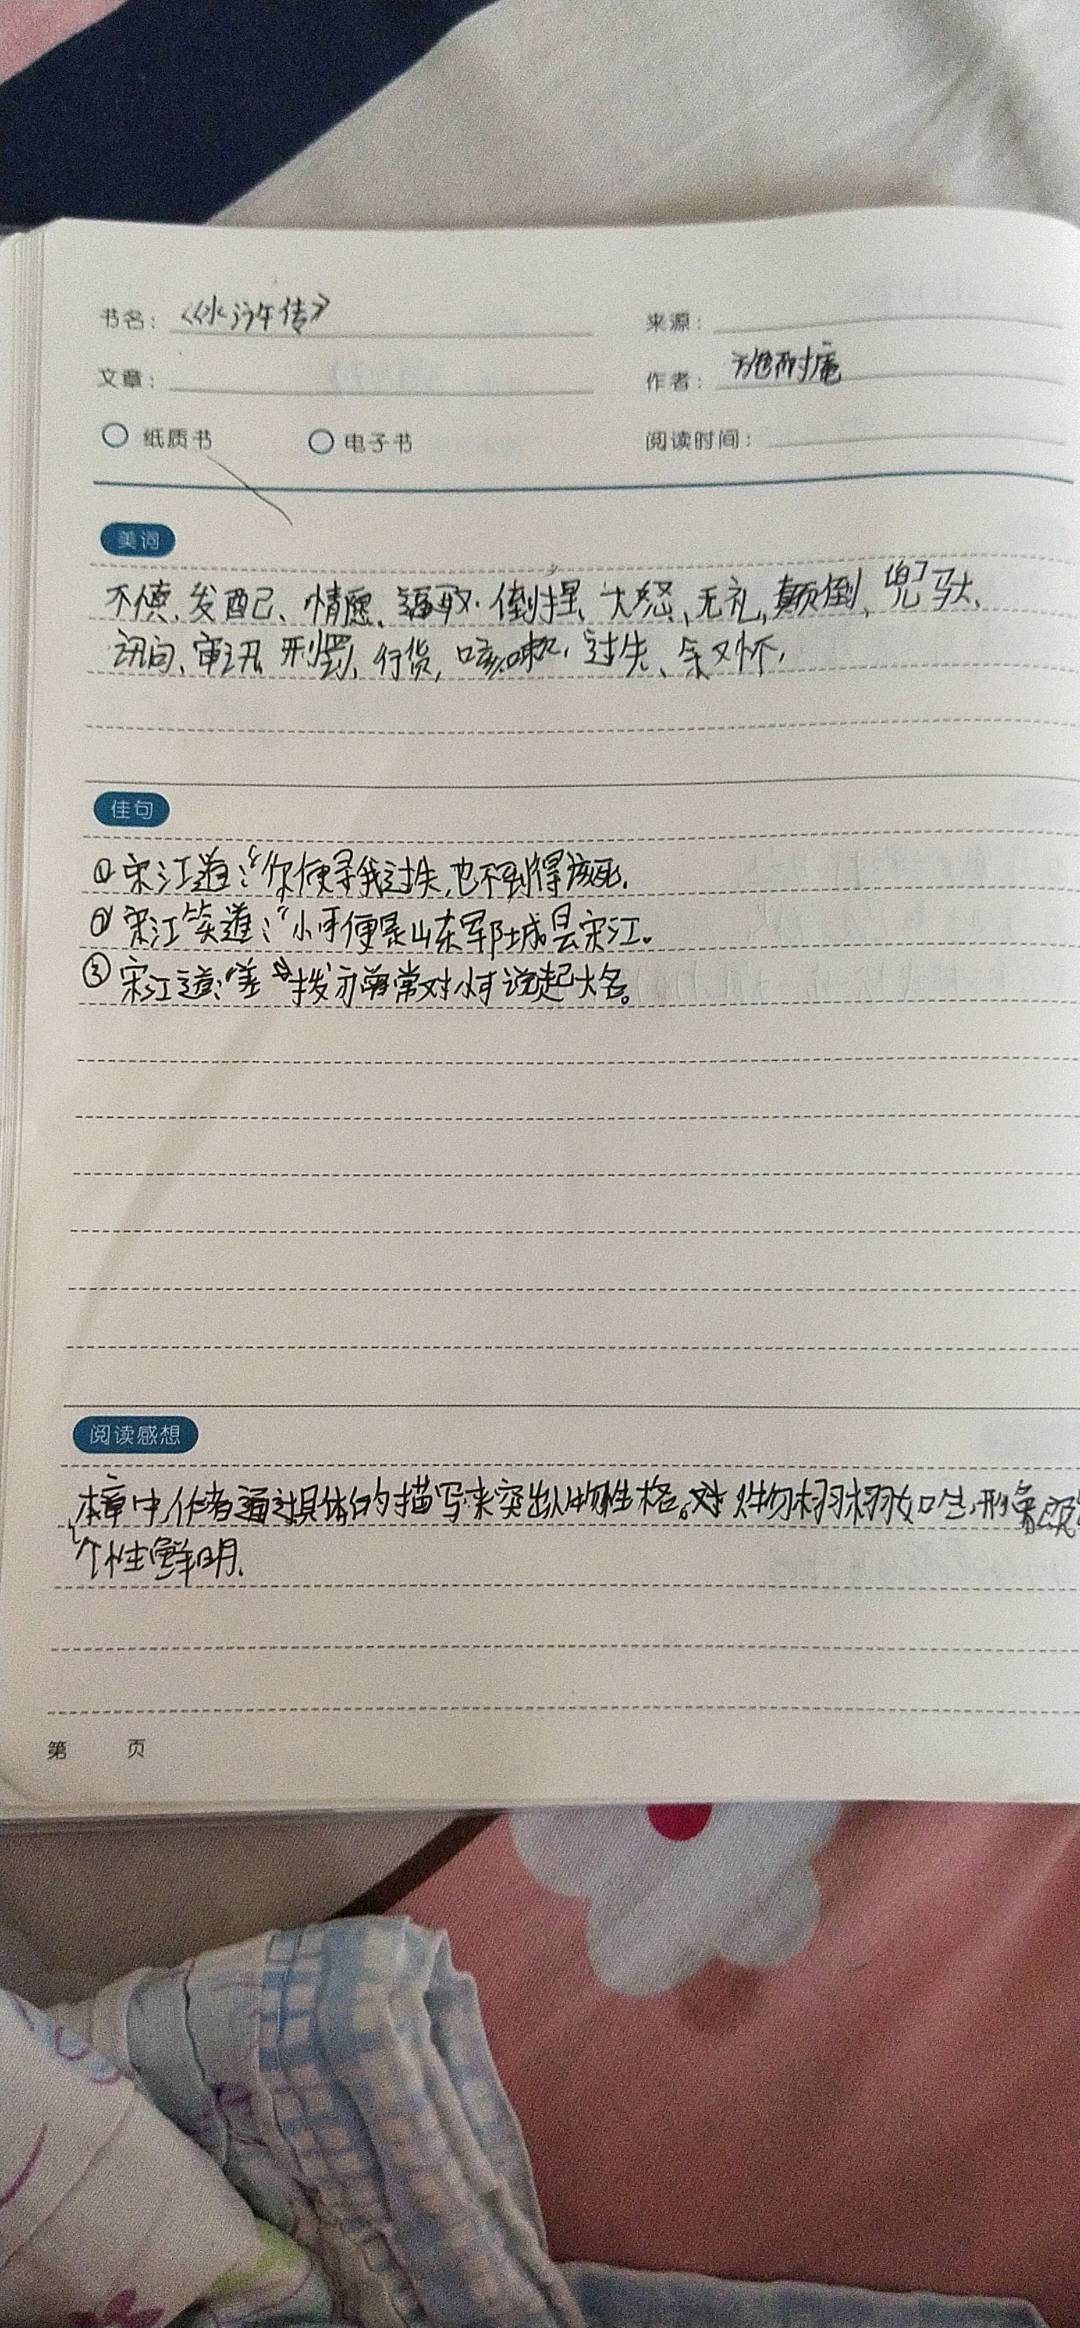 书名：《水浒传》 来源：
文章： 作者：施耐庵
纸质书 电子书 阅读时间：
美词
不慎、发配、情愿、大怒、无礼、颠倒、兜驮、
讯问、审讯、刑罚、行货，咳嗽，过失、
佳句
①宋江道：“你便寻我过失，也不到得该死。
②宋江笑道：“小可便是山东郓城县宋江。
③宋江道：“差拨亦常对小可说起大名。
阅读感想
本章中，作者通过具体的描写来突出人物性格。人物栩栩如生，形象
个性鲜明。
第 页